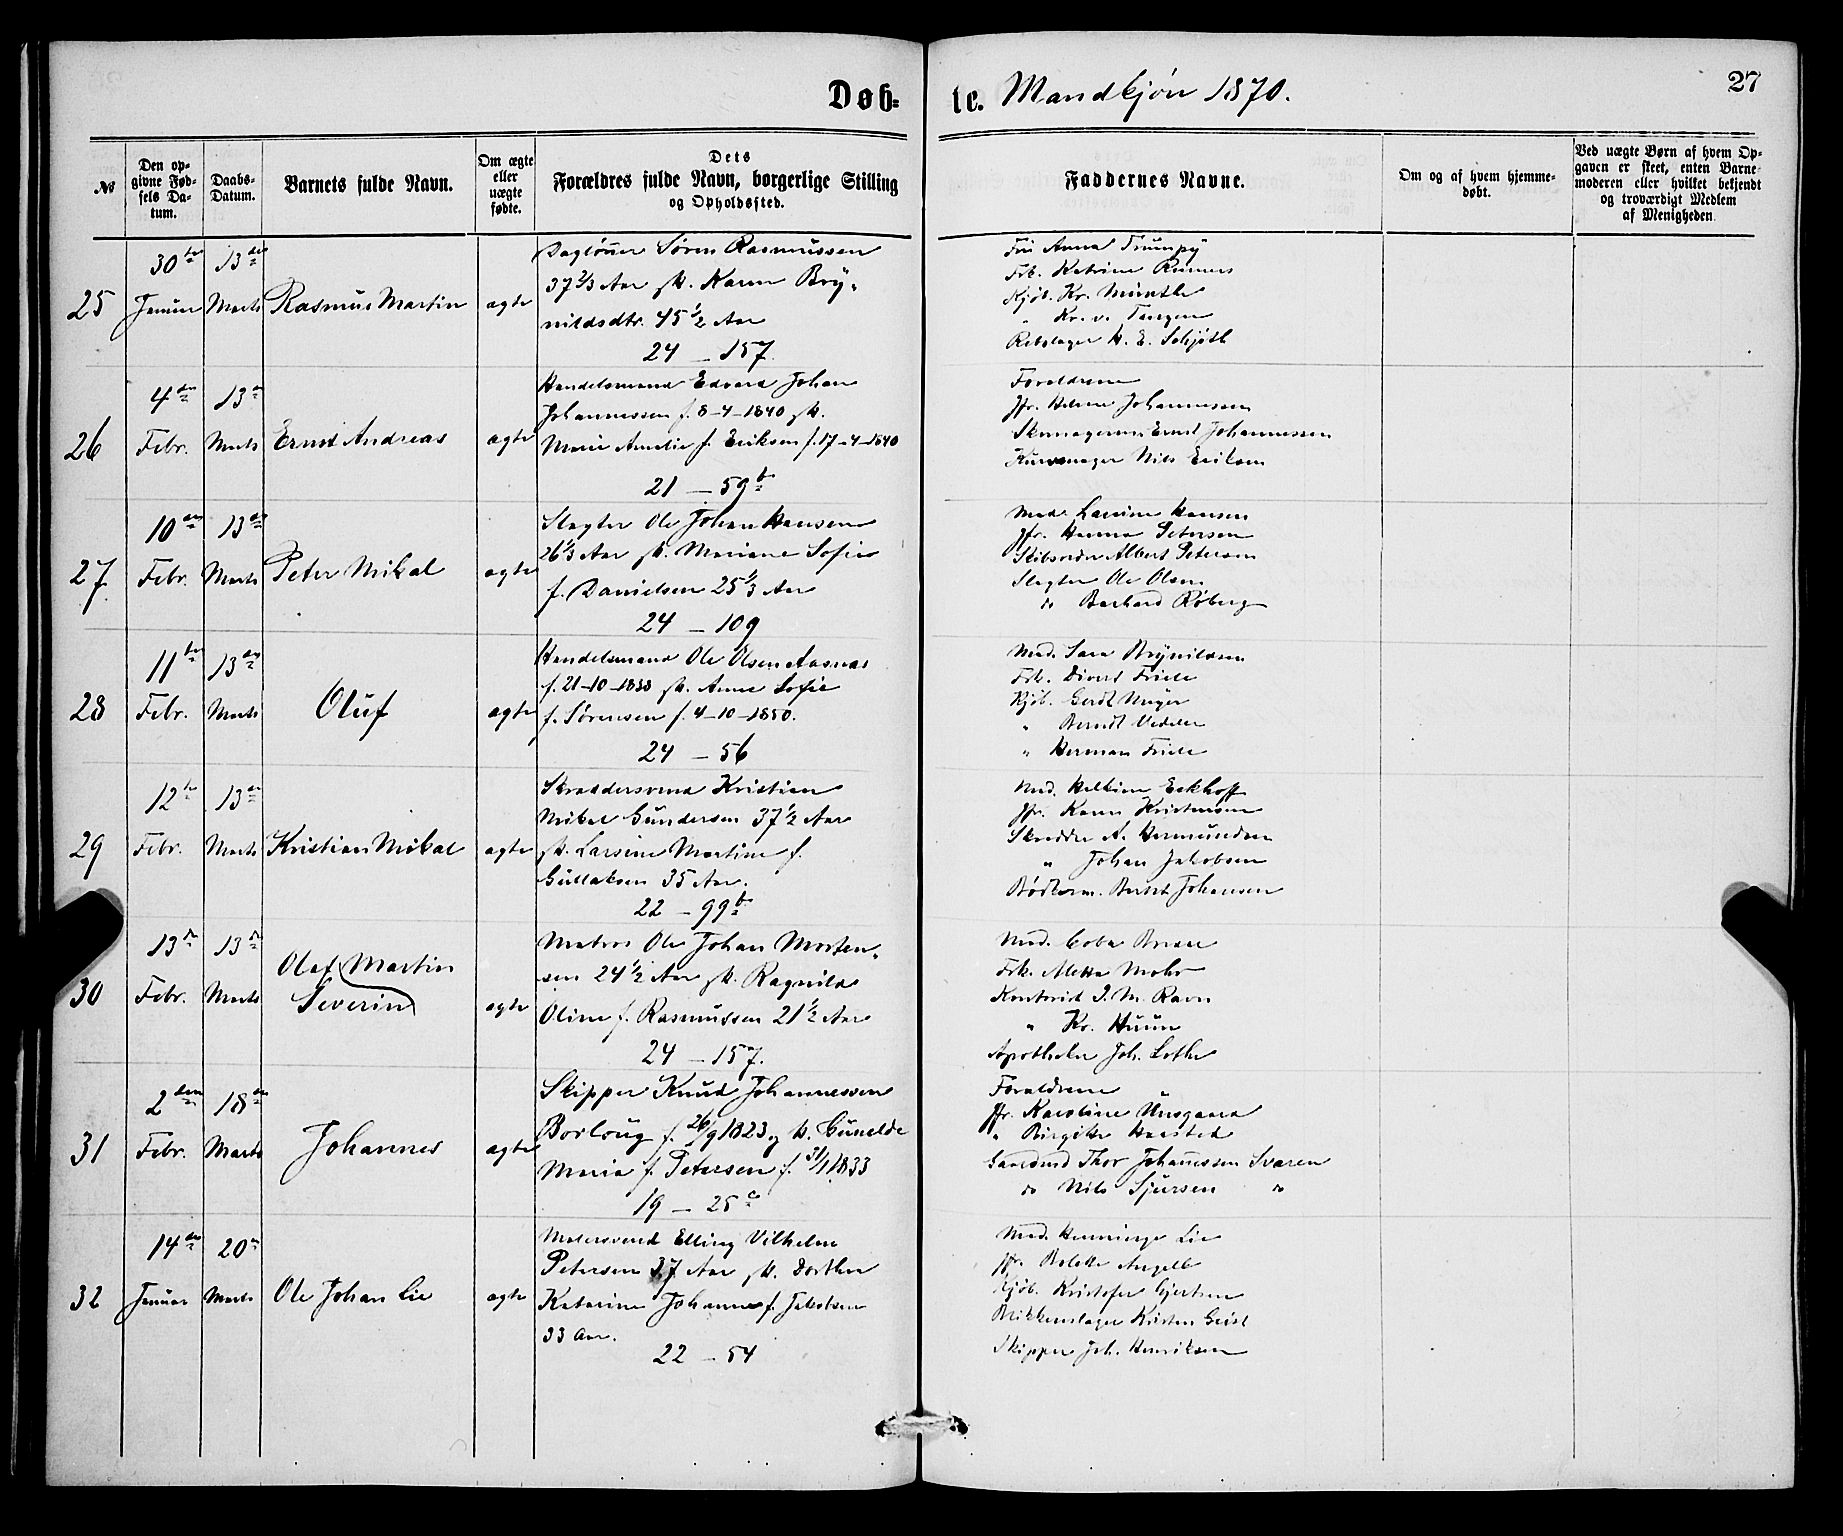 Døb-
te. Mandkjøn 1870.
27
№
Den op-
givne Fød-
sels Da-
tum.
Daabs-
Datum.
Barnets fulde Navn.
Om ægte
eller
uægte
fødte.
Dets
Forældres fulde Navn, borgerlige Stilling
og Opholdssted.
Faddernes Navne.
Om og af hvem hjemme-
døbt.
Ved uægte Børn af hvem Op-
gaven er skeet, enten Barne-
moderen eller hvilket bekjendt
og troværdigt Medlem
af Menigheden.
25
30te
Januar
13de
Marts
Rasmus Martin
ægte
Daglønner Søren Rasmussen
37 2/3 Aar & H. Karen Bry-
nildsdtr. 45 1/2 Aar
24 – 157
Fru Anna Trumpy
Frk. Katrine
Kjøb. Kr. Münthe
" Kr. v. Tangen
Rebslager H. E. Schjøth
26
4de
Febr.
13de
Marts
Ernst Andreas
ægte
Handelsmand Edvard Johan
Johannessen f. 8-4-1840 & H.
Marie Amalie f. Eriksen f. 17-4-1840
21 – 59b
Forældrene
Jfr. Helene Johannessen
Skomagersv. Ernst Johannessen
Nils Eriksen
27
10de
Febr.
13de
Marts
Peter Mikal
ægte
Slagter Ole Johan Hansen
26 1/3 Aar & H. Mariane Sofie
f. Danielsen 25 1/3 Aar
24 – 109
Mad. Lavine Hansen
Jfr. Hanna Petersen
Skibsreder Albert Petersen
Slagter Ole Olsen
do Berhard Røberg
28
11te
Febr.
13de
Marts
Oluf
ægte
Handelsmand Ole Olsen Aasnæs
f. 21-10-1838 & H. Anne Sofie
f. Sørensen f. 4-10-1850.
24 – 56
Mad. Sara Brynildsen
Frk. Divert Friele
Kjøb. Gerdt Meyer
" Berndt Vedeler
" Herman Friele
29
12te
Febr.
13de
Marts
Kristian Mikal
ægte
Skræddersvend Kristian
Mikal Gundersen 37 1/2 Aar
& H. Larsine Martine f.
Gullaksen 35 Aar.
22 – 99b
Mad. Eckhoff
Jfr. Karen Kristensen
Skrædder A. Hermundsen
" Johan Jakobsen
Bødkerm. Berent Johansen
30
13de
Febr.
13de
Marts
Olaf Martin
Severin
ægte
Matros Ole Johan Morten-
sen 24 1/2 Aar & H. Ragnilde
Oline f. Rasmussen 21 1/2 Aar
24 – 157.
Mad. Coba
Frk. Aletta Mohr
Kontorist J. M. Ravn
" Kr. Huun
Apotheker Joh. Lothe
31
2den
Febr.
18de
Marts
Johannes
ægte
Skipper Knud Johannessen
Borloug f. 26/9 1823 og H. Gunelde
Maria f. Petersen f. 31/1 1833
19 – 25c
Forældrene
Jfr. Karoline Unsgaard
" Birgitte Harstad
Gaardmd Thor Johannessen Svaren
do Nils Sjursen do
32
14de
Januar
20de
Marts
Ole Johan Lie
ægte
Malersvend Elling Vilhelm
Petersen 37 Aar & H. Dorthea
Katarina Johanne f. Jakobsen
33 Aar.
22 – 54
Mad. Henninge Lie
Jfr. Bolette Angell
Kjøb. Kristofer Gjertsen
Blikkenslager Kristen Geist
Skipper Joh. Henriksen